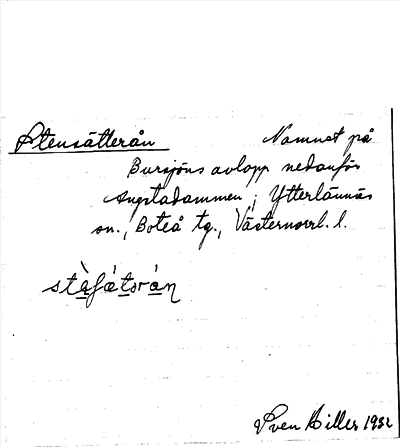 Stensätterån Namnet på
Bursjöns avlopp nedanför
Angstadammen, Ytterlännäs
sn., Boteå tg., Västernorrl. l.
Sven Hiller 1932